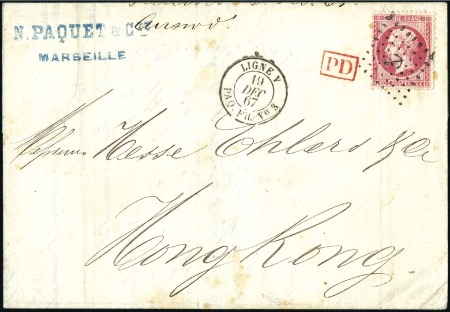 N. PAQUET & Cie
MARSEILLE
LIGNE V
19
DEC
67
PAQ. FR. No 3
PD
Messieurs Hesse Ehlers & Co
Hong Kong